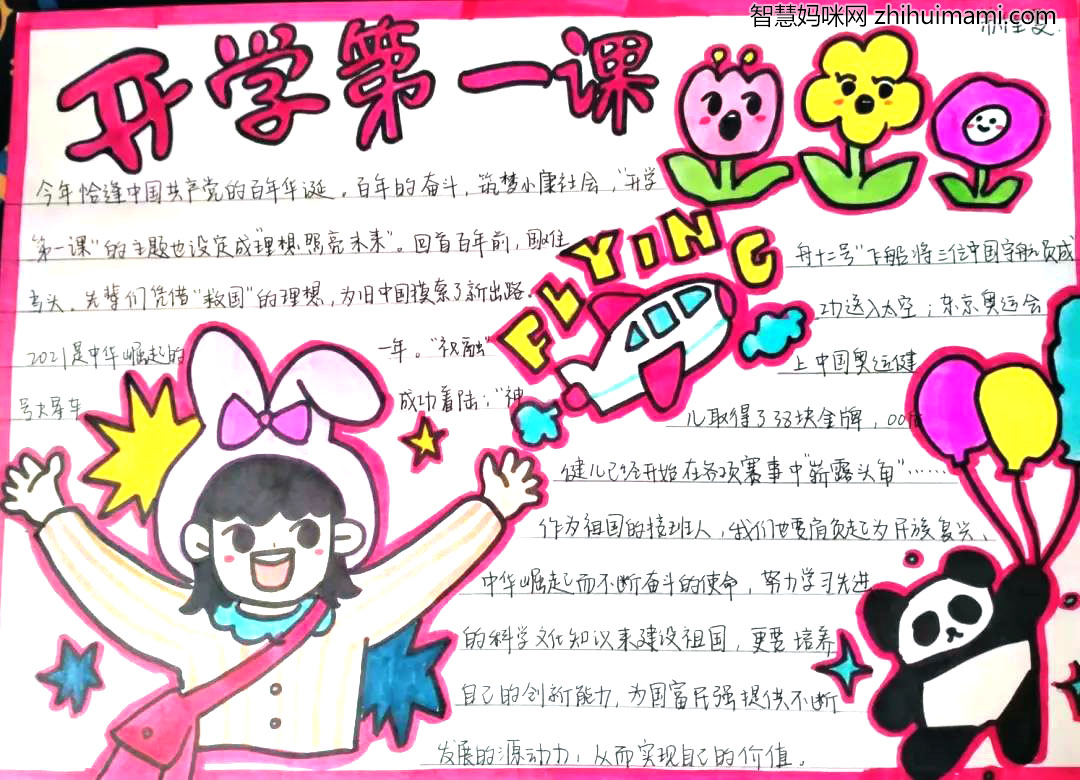 智慧妈咪网 zhihuimami.com
开学第一课
今年恰逢中国共产党的百年华诞。百年的奋斗，筑梦小康社会，"开学
第一课"的主题也设定成"理想照亮未来"。回首百年前，国难
当头，先辈们凭借"救国"的理想，为旧中国摸索了新出路。
2021是中华崛起的一年。"祝融"
号火星车成功着陆；"神
FLYING
舟十二号"飞船将三位中国宇航员成
功送入太空；东京奥运会
上中国奥运健
儿取得了38块金牌，00后
健儿已经开始在各项赛事中"崭露头角"……
作为祖国的接班人，我们也要肩负起为民族复兴、
中华崛起而不断奋斗的使命，努力学习先进
的科学文化知识来建设祖国，更要培养
自己的创新能力，为国富民强提供不断
发展的源动力，从而实现自己的价值。